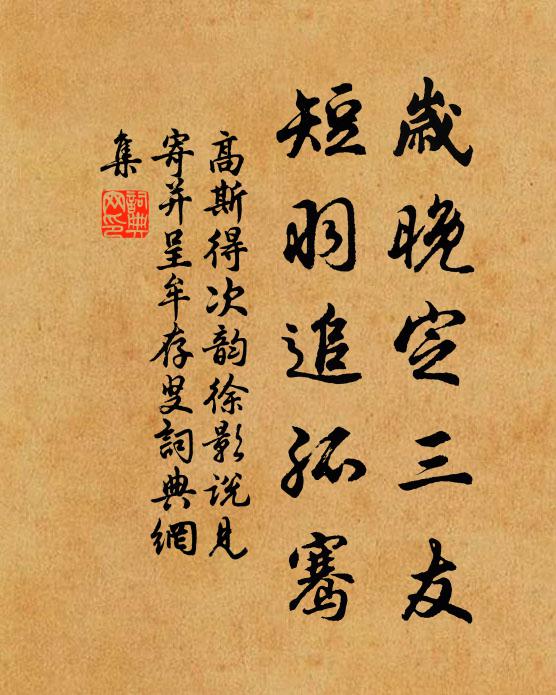 歲晚定三友
短羽追孤騫
高斯得次韵徐影説見
寄并呈牟存叟詞典網
集
詞典网印